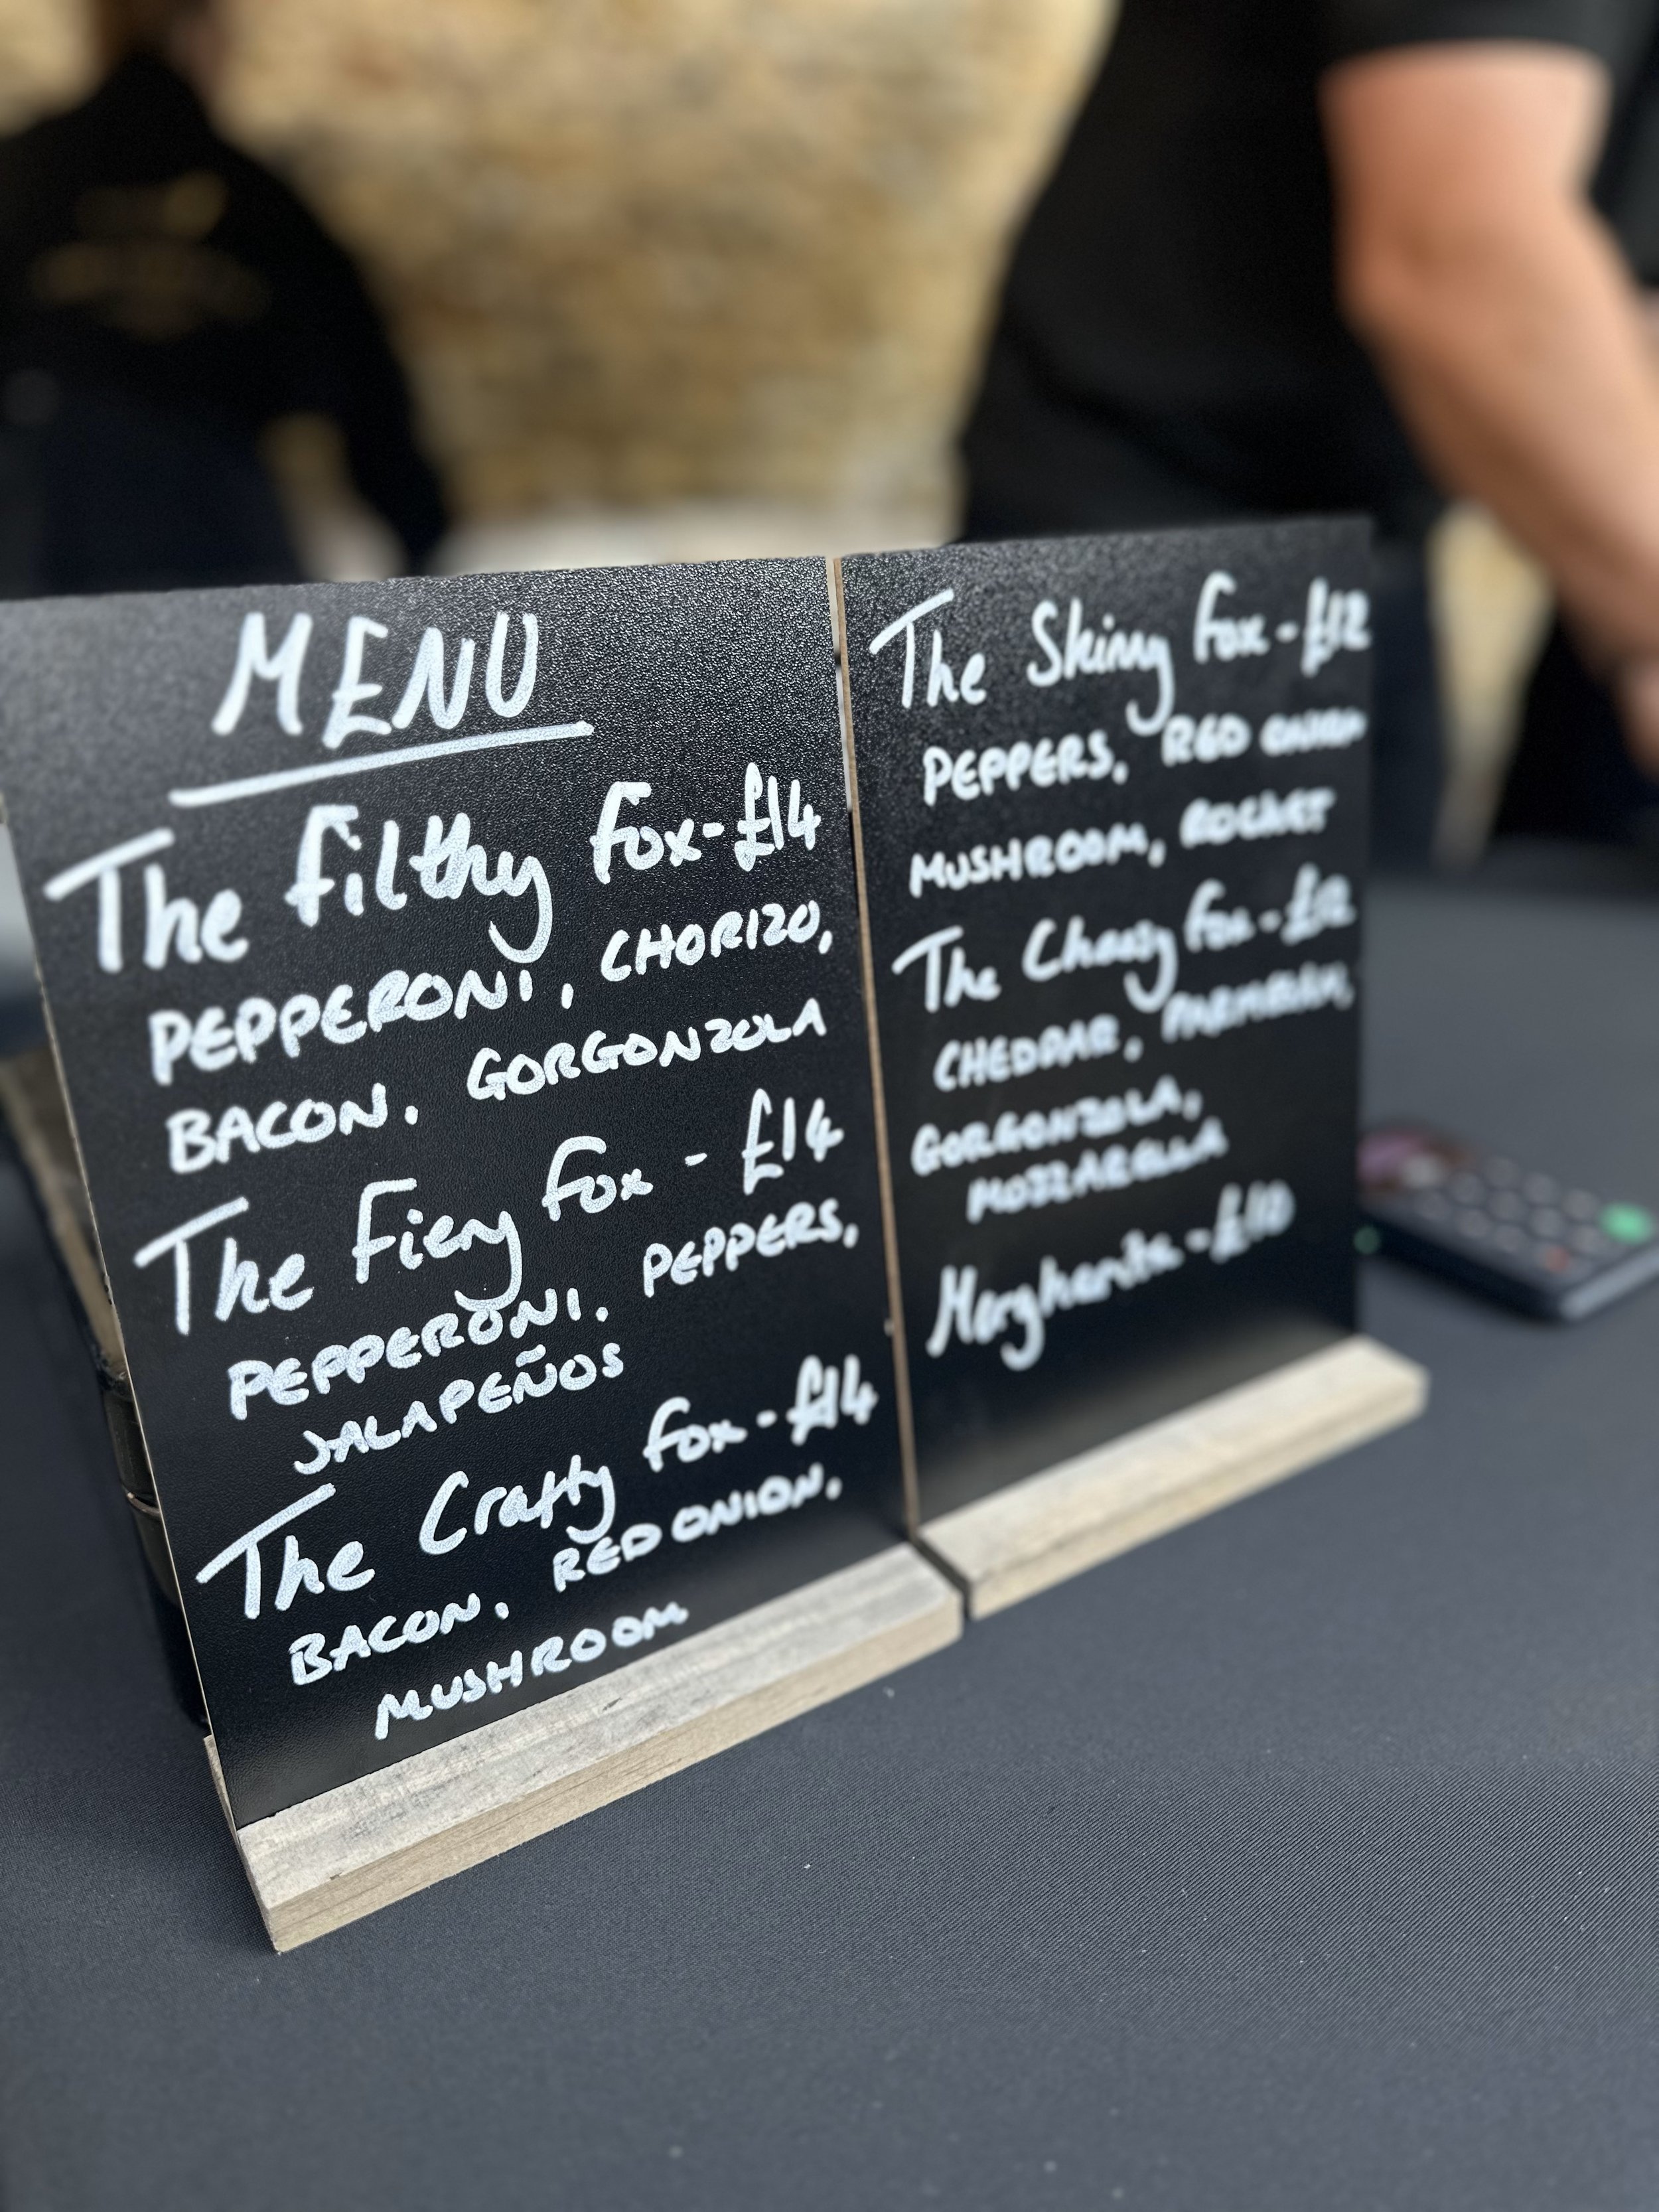 MENU
The Filthy Fox - £14
PEPPERONI, CHORIZO,
BACON, GORGONZOLA
The Fiery Fox - £14
PEPPERONI, PEPPERS,
JALAPEÑOS
The Crafty Fox - £14
BACON, RED ONION,
MUSHROOM
The Skinny Fox - £12
PEPPERS, RED ONION
MUSHROOM, ROCKET
The Cheesy Fox - £12
CHEDDAR, PARMESAN,
GORGONZOLA,
MOZZARELLA
Margherita - £10